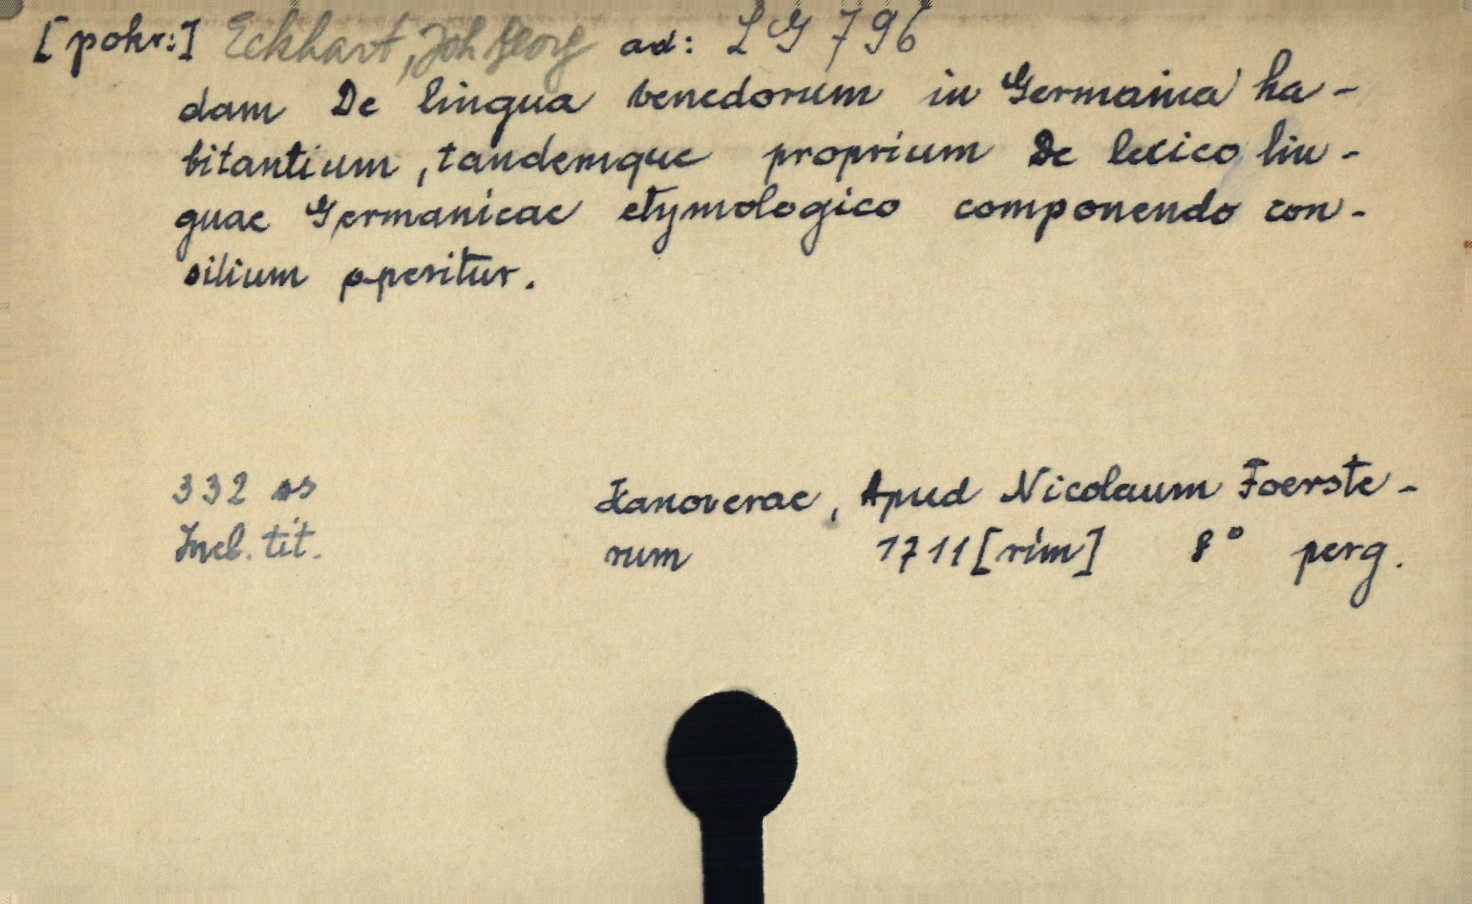 [pokr:] Eckhart, Joh Georg ad: LG 796
dam De lingua venedorum in Germania ha-
bitantium, tandemque proprium De lexico lin-
guae Germanicae etymologico componendo con-
silium aperitur.
332 ss Hanoverae, Apud Nicolaum Foerste-
Incl. tit. rum 1711 [rim] 8° perg.